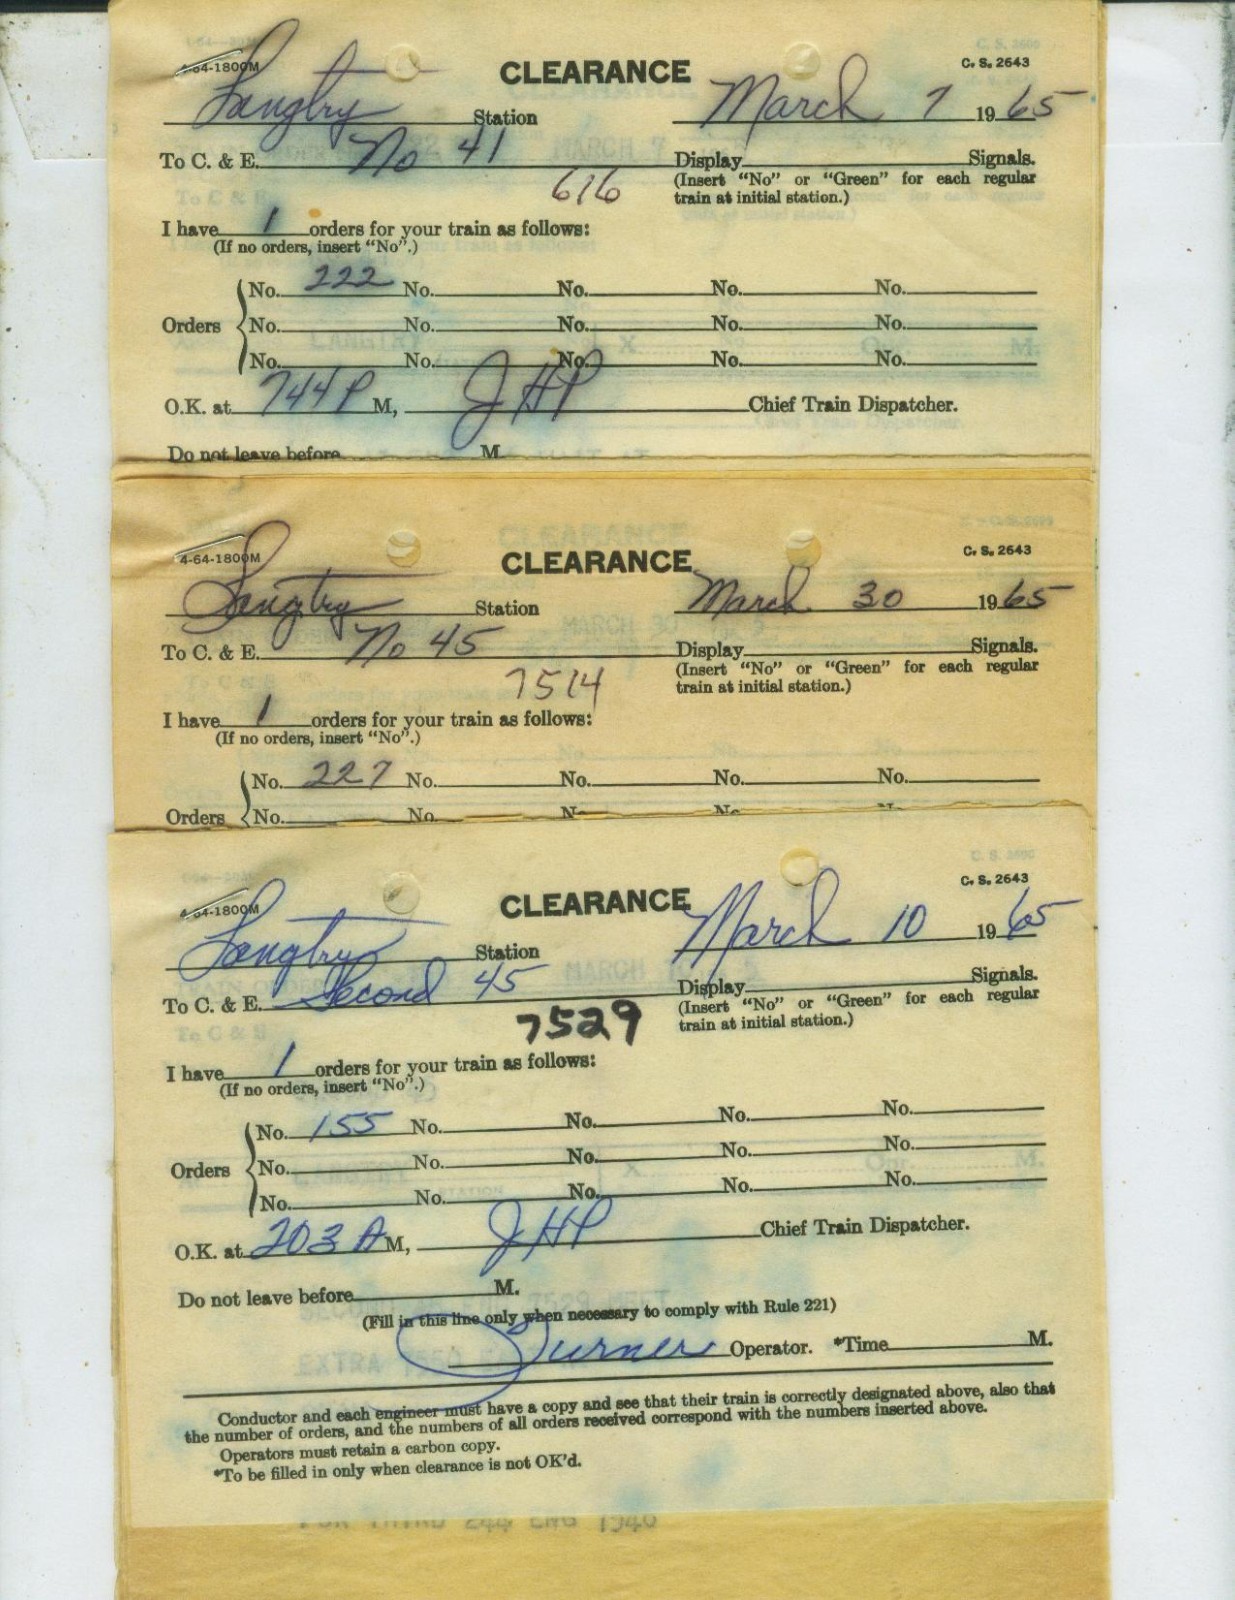 4-64-1800M CLEARANCE C. S. 2643
Langtry Station March 7 1965
To C. & E. No 41 Display Signals.
616 (Insert "No" or "Green" for each regular
train at initial station.)
I have 1 orders for your train as follows:
(If no orders, insert "No".)
No. 222 No. No. No. No.
Orders No. No. No. No. No.
No. No. No. No. No.
O.K. at 744 P M, JHP Chief Train Dispatcher.
Do not leave before M.
4-64-1800M CLEARANCE C. S. 2643
Langtry Station March 30 1965
To C. & E. No 45 Display Signals.
7514 (Insert "No" or "Green" for each regular
train at initial station.)
I have 1 orders for your train as follows:
(If no orders, insert "No".)
No. 227 No. No. No. No.
Orders No. No. No. No. No.
4-64-1800M CLEARANCE C. S. 2643
Langtry Station March 10 1965
To C. & E. Second 45 Display Signals.
7529 (Insert "No" or "Green" for each regular
train at initial station.)
I have 1 orders for your train as follows:
(If no orders, insert "No".)
No. 155 No. No. No. No.
Orders No. No. No. No. No.
No. No. No. No. No.
O.K. at 203 A M, JHP Chief Train Dispatcher.
Do not leave before M.
(Fill in this line only when necessary to comply with Rule 221)
Turner Operator. *Time M.
Conductor and each engineer must have a copy and see that their train is correctly designated above, also that
the number of orders, and the numbers of all orders received correspond with the numbers inserted above.
Operators must retain a carbon copy.
*To be filled in only when clearance is not OK'd.
FOR THIRD 244 ENG 1540